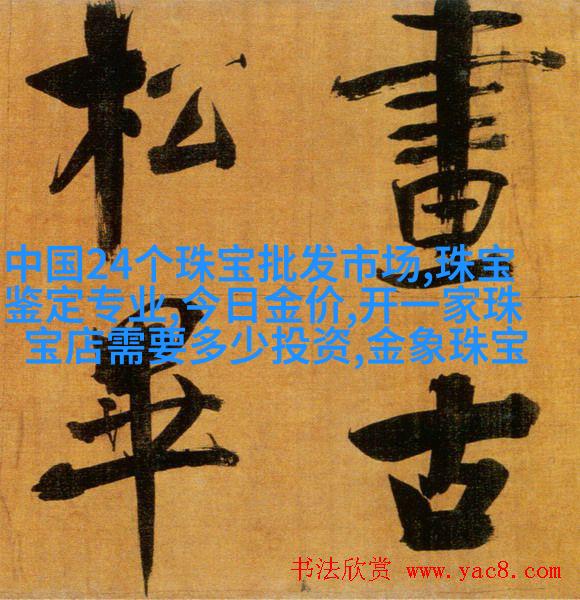 畫古
松畢
中国24个珠宝批发市场,珠宝
鉴定专业,今日金价,开一家珠
宝店需要多少投资,金象珠宝
书法欣赏 www.yac8.com